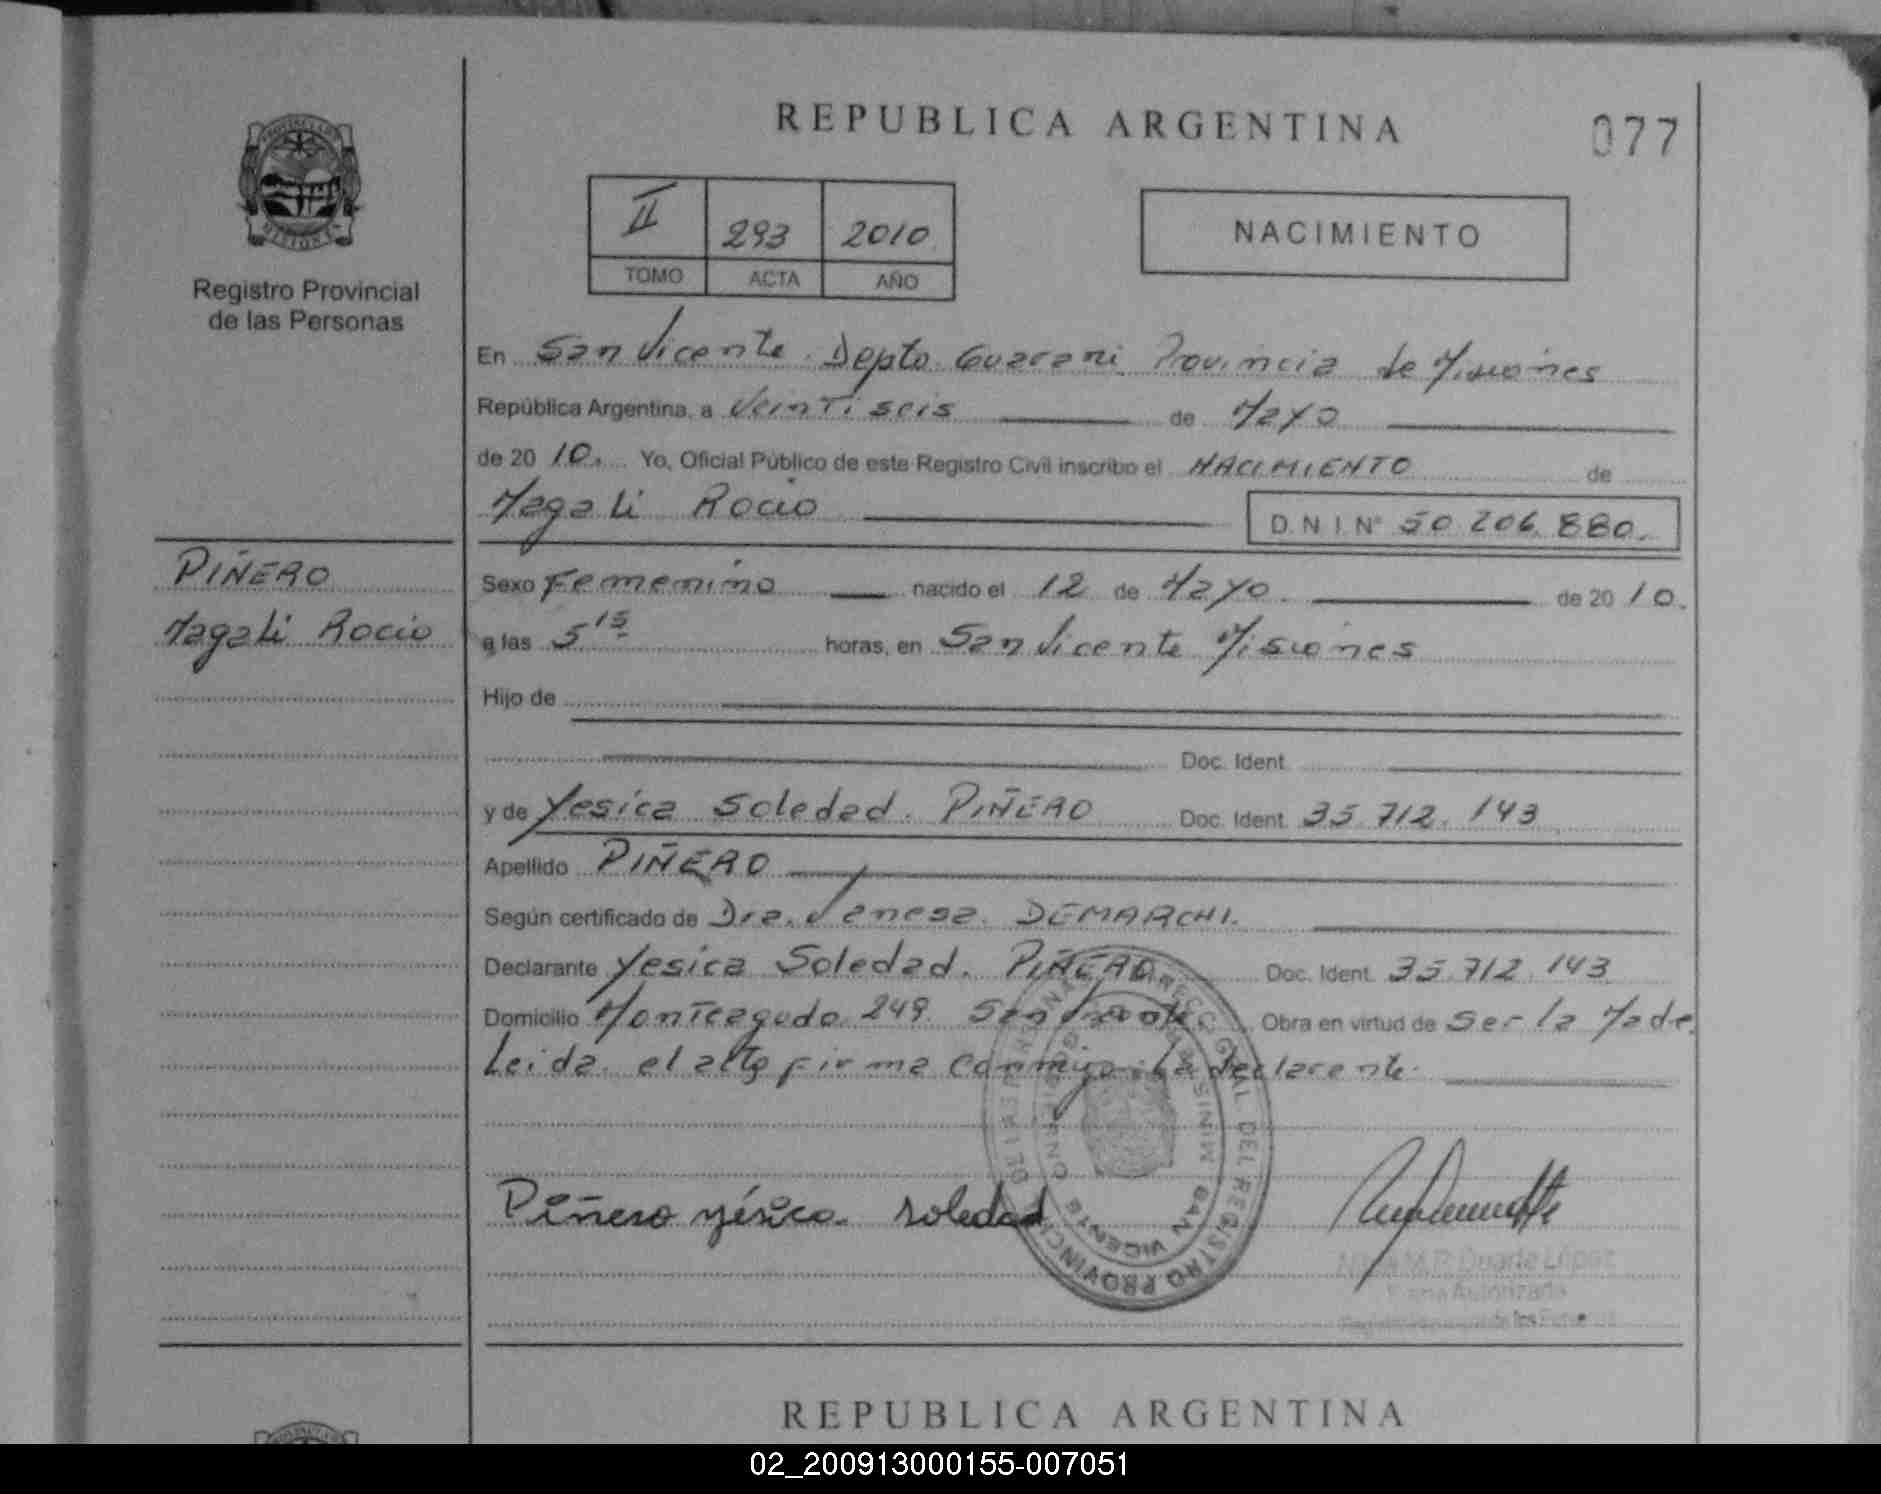 REPUBLICA ARGENTINA
077
II 293 2010
TOMO ACTA AÑO
NACIMIENTO
Registro Provincial
de las Personas
En San Vicente Depto Guarani Provincia de Misiones
República Argentina, a Veintiseis de Mayo
de 2010. Yo, Oficial Público de este Registro Civil inscribo el NACIMIENTO de
Magali Rocio
D. N. I. N° 50.206.880.
PIÑERO
Magali Rocio
Sexo Femenino nacido el 12 de Mayo. de 2010.
a las 5 15 horas, en San Vicente Misiones
Hijo de
Doc. Ident.
y de Yesica Soledad. PIÑERO Doc. Ident. 35.712.143
Apellido PIÑERO
Según certificado de Dra. Vanesa. DEMARCHI.
Declarante Yesica Soledad. PIÑERO Doc. Ident. 35.712.143
Domicilio Monteagudo 249. San Vicente Obra en virtud de Ser la Madre.
Leida el acta firma conmigo la declarante.
Piñero yésica soledad
DIRECC. GRAL. DEL REGISTRO PROVINCIAL DE LAS PERSONAS
SAN VICENTE
M.P. Duarte López
Autorizada
de las Personas
REPUBLICA ARGENTINA
02_200913000155-007051